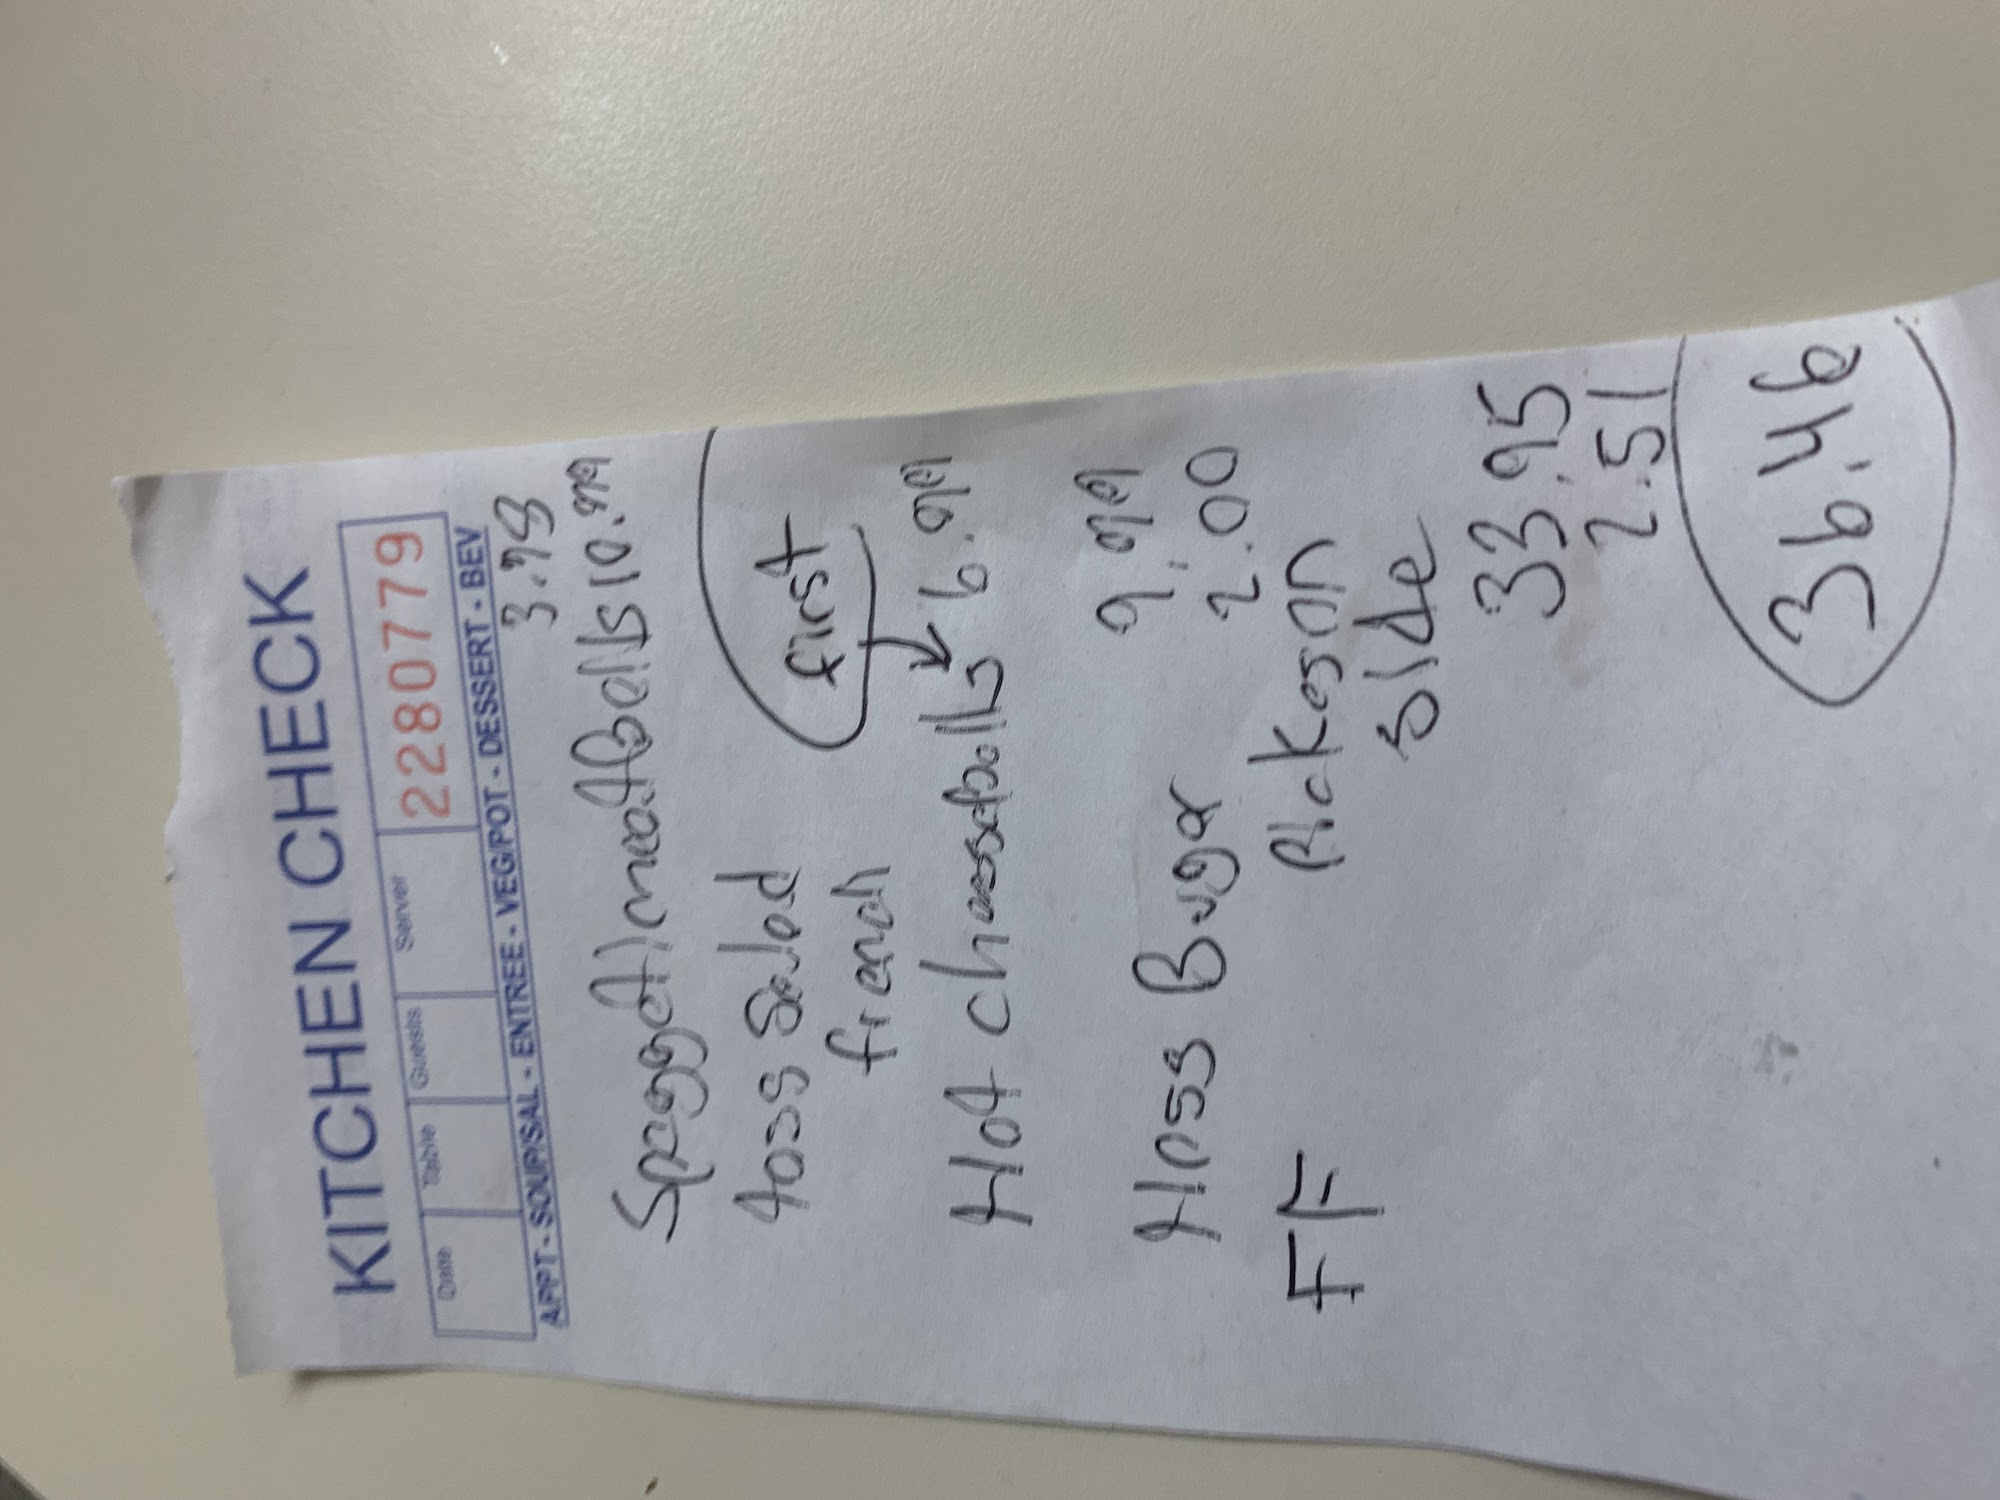 KITCHEN CHECK
Date Table Guests Server 2280779
APPT - SOUP/SAL - ENTREE - VEG/POT - DESSERT - BEV
3.98
Spaggetti meatBalls 10.99
toss Salad
first
french
Hot chesseballs 6.99
Hoss Burger 9.99
FF 2.00
Pickes on
side
33.95
2.51
36.46